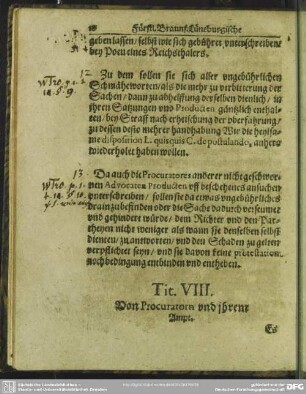 Fürstl. Braunß. Lüneburgische
geben lassen / selbst wie sich gebühret unterschreiben /
bey Poen eines Reichsthalers.
12.
Zu dem sollen sie sich aller ungebührlichen
Schmähworten / als die mehr zu verbitterung der
Sachen / dann zu abhelffung derselben dienlich / in
ihren Satzungen vnd Producten gäntzlich enthal-
ten / bey Straff nach erheischung der überfahrung /
zu dessen desto mehrer handhabung Wir die heylsa-
me disposition L. quisquis C. de postulando, anhero
wiederholet haben wollen.
13.
Da auch die Procuratores anderer nicht geschwor-
nen Advocaten Producten vff bescheienes ansuchen
vnterschreiben / sollen sie da etwas ungebührliches
drain zubefinden oder die Sache dadurch verseumet
vnd gehindert würde / dem Richter vnd den Par-
theyen nicht weniger als wann sie denselben selbst
dienten / zu antworten / vnd den Schaden zu gelten
verpflichtet seyn / vnd sie davon keine protestation
noch bedingung entbinden vnd entheben.
Tit. VIII.
Von Procuratorn vnd ihrem
Ampt.
Es